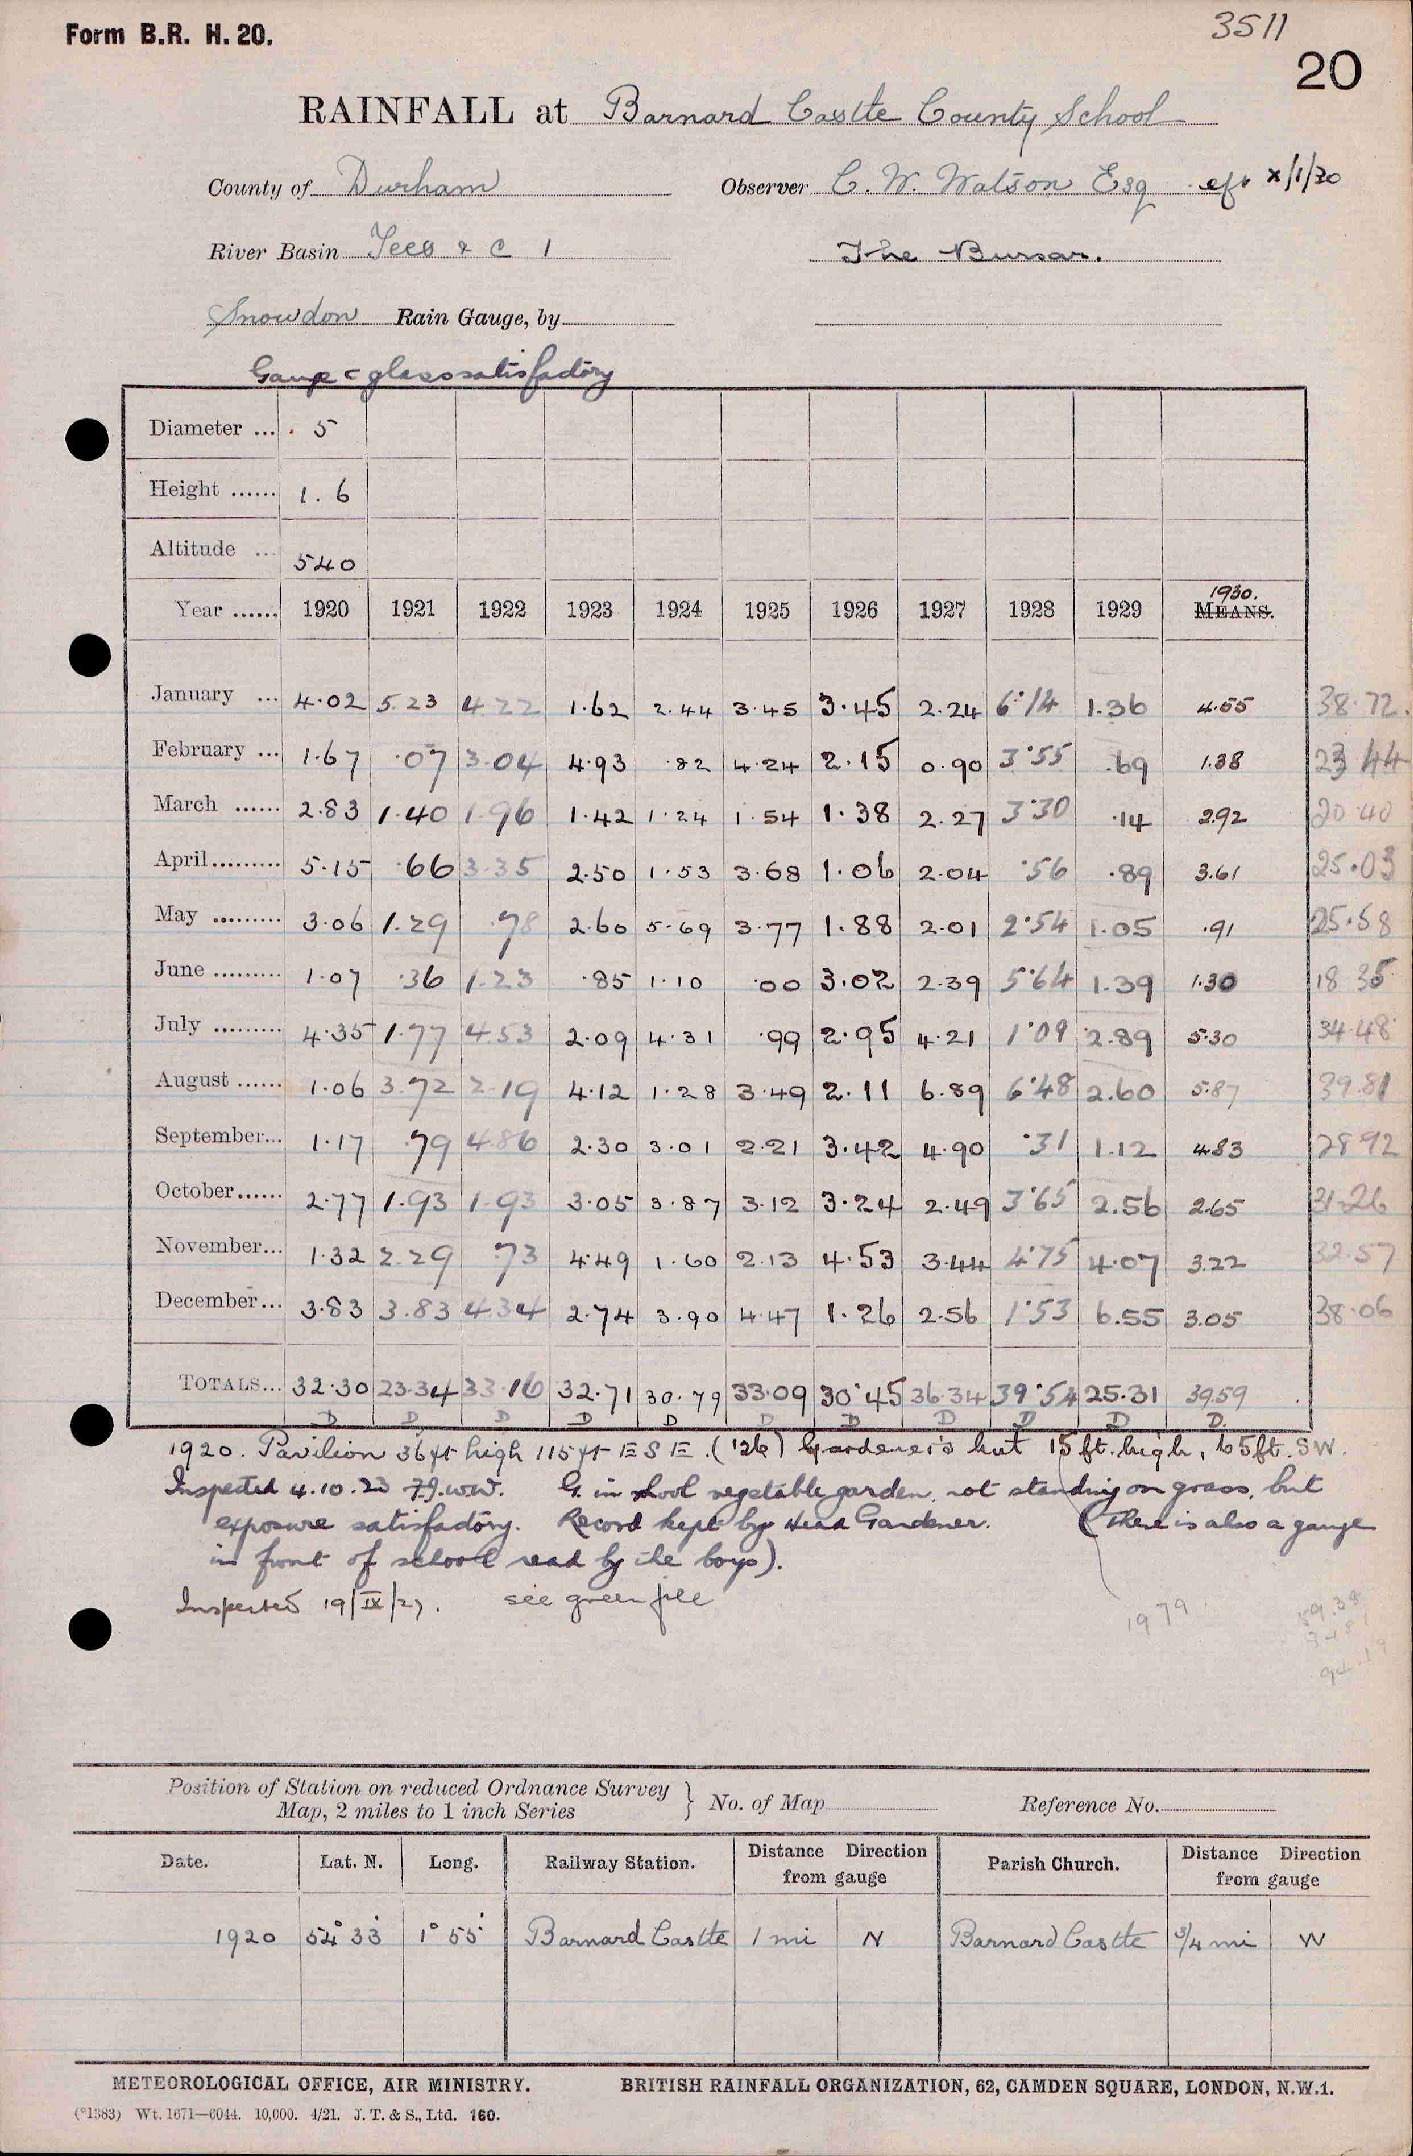 Form B.R. H. 20.
3511
20
RAINFALL at Barnard Castle County School
County of Durham Observer C. W. Watson Esq
River Basin Tees & C 1 The Bursar.
Snowdon Rain Gauge, by
Gauge & glass satisfactory
Diameter ... 5
Height ...... 1.6
Altitude ... 540
1930.
Year ...... 1920 1921 1922 1923 1924 1925 1926 1927 1928 1929 MEANS.
January ... 4.02 5.23 4.22 1.62 2.44 3.45 3.45 2.24 6.14 1.36 4.55 38.72
February ... 1.67 .07 3.04 4.93 .82 4.24 2.15 0.90 3.55 .69 1.38 23.44
March ...... 2.83 1.40 1.96 1.42 1.24 1.54 1.38 2.27 3.30 .14 2.92 20.40
April ......... 5.15 .66 3.35 2.50 1.53 3.68 1.06 2.04 .56 .89 3.61 25.03
May ......... 3.06 1.29 .78 2.60 5.69 3.77 1.88 2.01 2.54 1.05 .91 25.58
June ......... 1.07 .36 1.23 .85 1.10 .00 3.02 2.39 5.64 1.39 1.30 18.35
July ......... 4.35 1.77 4.53 2.09 4.31 .99 2.95 4.21 1.09 2.89 5.30 34.48
August ...... 1.06 3.72 2.19 4.12 1.28 3.49 2.11 6.89 6.48 2.60 5.87 39.81
September... 1.17 .79 4.86 2.30 3.01 2.21 3.42 4.90 .31 1.12 4.83 28.92
October...... 2.77 1.93 1.93 3.05 3.87 3.12 3.24 2.49 3.65 2.56 2.65 31.26
November... 1.32 2.29 .73 4.49 1.60 2.13 4.53 3.44 4.75 4.07 3.22 32.57
December... 3.83 3.83 4.34 2.74 3.90 4.47 1.26 2.56 1.53 6.55 3.05 38.06
TOTALS... 32.30 23.34 33.16 32.71 30.79 33.09 30.45 36.34 39.54 25.31 39.59
D D D D D D D D D D D
1920. Pavilion 36 ft high 115 ft E S E. (126) Gardener's hut 15 ft. high, 65 ft. SW.
Inspected 4.10.23 G. in school vegetable garden, not standing on grass, but
exposure satisfactory. Record kept by Head Gardener. (There is also a gauge
in front of school read by the boys).
Inspected 19/IX/27. see green file
1979
Position of Station on reduced Ordnance Survey
Map, 2 miles to 1 inch Series } No. of Map Reference No.
Date. Lat. N. Long. Railway Station. Distance Direction from gauge Parish Church. Distance Direction from gauge
1920 54° 33' 1° 55' Barnard Castle 1 mi N Barnard Castle 3/4 mi W
METEOROLOGICAL OFFICE, AIR MINISTRY. BRITISH RAINFALL ORGANIZATION, 62, CAMDEN SQUARE, LONDON, N.W.1.
(*1383) Wt. 1671—6044. 10,000. 4/21. J. T. & S., Ltd. 160.